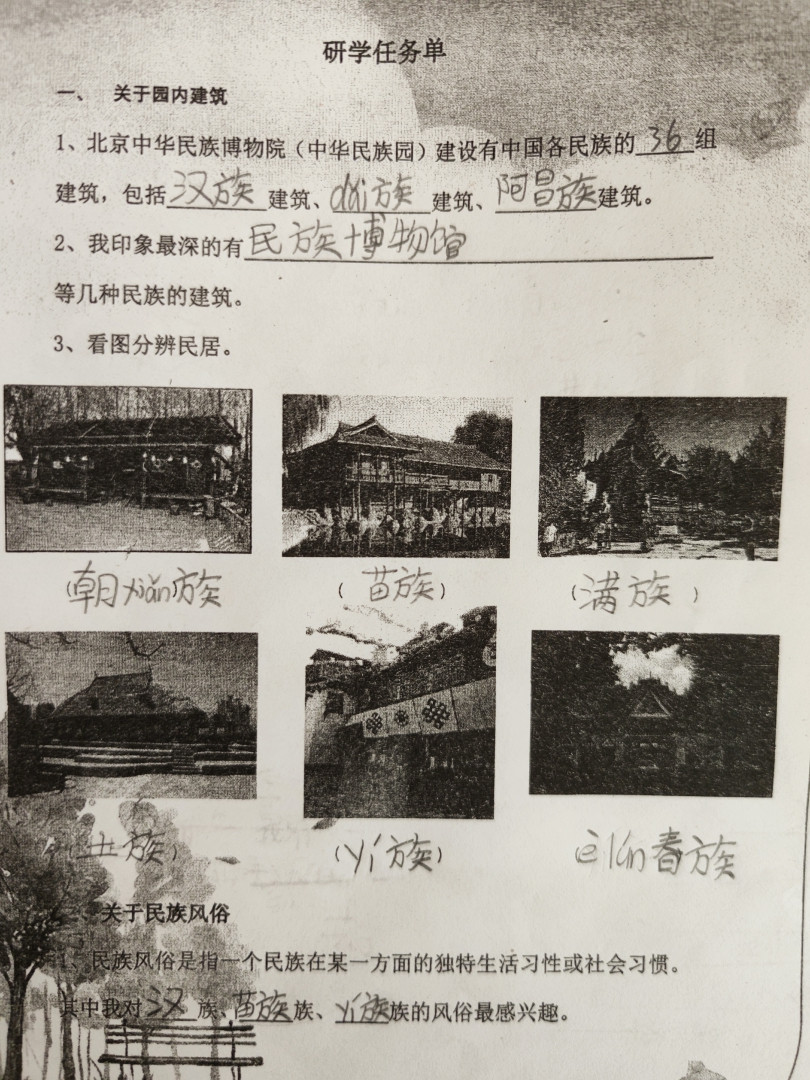 研学任务单
一、 关于园内建筑
1、北京中华民族博物院（中华民族园）建设有中国各民族的36组
建筑，包括汉族建筑、dǎi族建筑、阿昌族建筑。
2、我印象最深的有民族博物馆
等几种民族的建筑。
3、看图分辨民居。
（朝xiǎn族 （苗族） （满族）
族） （yí族） èlún春族
、关于民族风俗
1、民族风俗是指一个民族在某一方面的独特生活习性或社会习惯。
其中我对汉族、苗族族、yí族族的风俗最感兴趣。